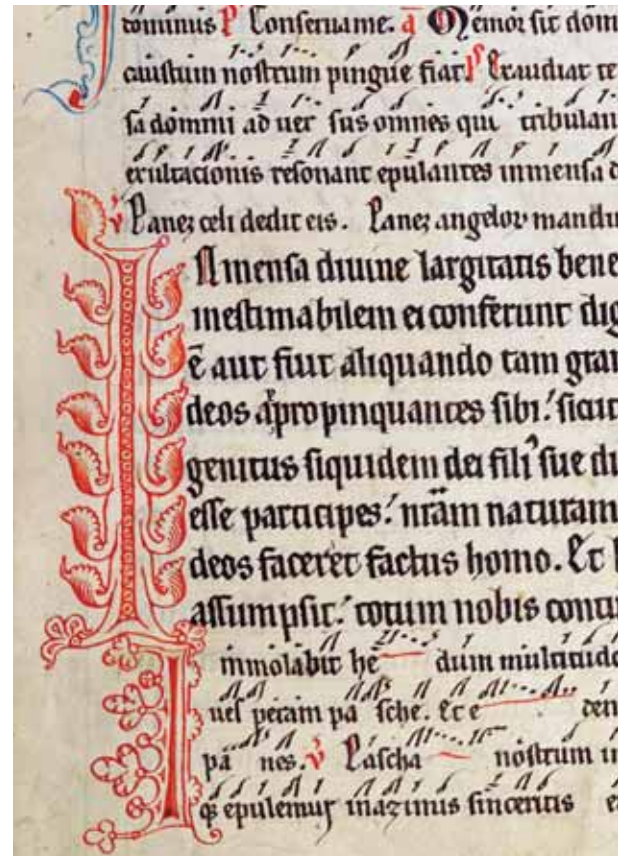 dominus p̃s Conseruame. ā Memor sit dom
cauistum nostrum pingue fiat. ps Exaudiat te
sa dommi ad uer sus omnes qui tribulan
exultacionis resonant epulantes inmensa d
v̄ Panez celi dedit eis. Panez angeloꝝ mandu
INmensa diuine largitatis bene
inestimabilem ei conferunt dig
ē aut fiut aliquando tam gran
deos apropinquantes sibi! sicut
genitus siquidem dei fili sue di
esse participes! nr̄am naturam
deos faceret factus homo. Et h
assumpsit! totum nobis contu
inmolabit he dum multitudo
uesperam pa sche. Et e den
pa nes. v̄ Pascha nostrum
qꝫ epulemur inazimis sinceritis e